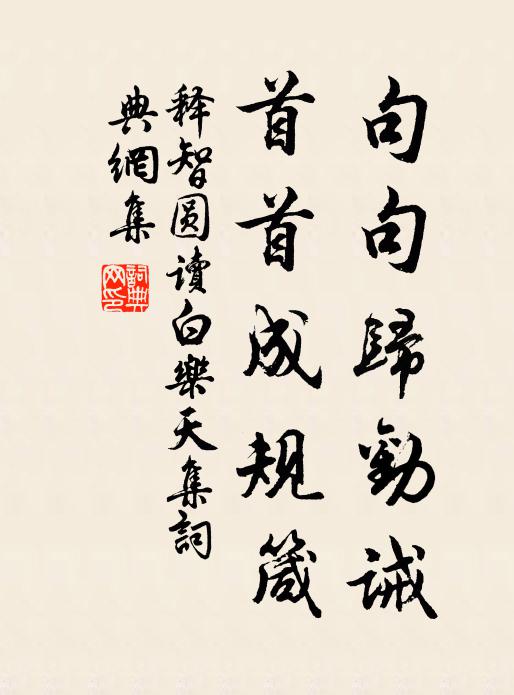 句句歸勸誡
首首成規箴
释智圆讀白樂天集詞
典網集
詞典
网印